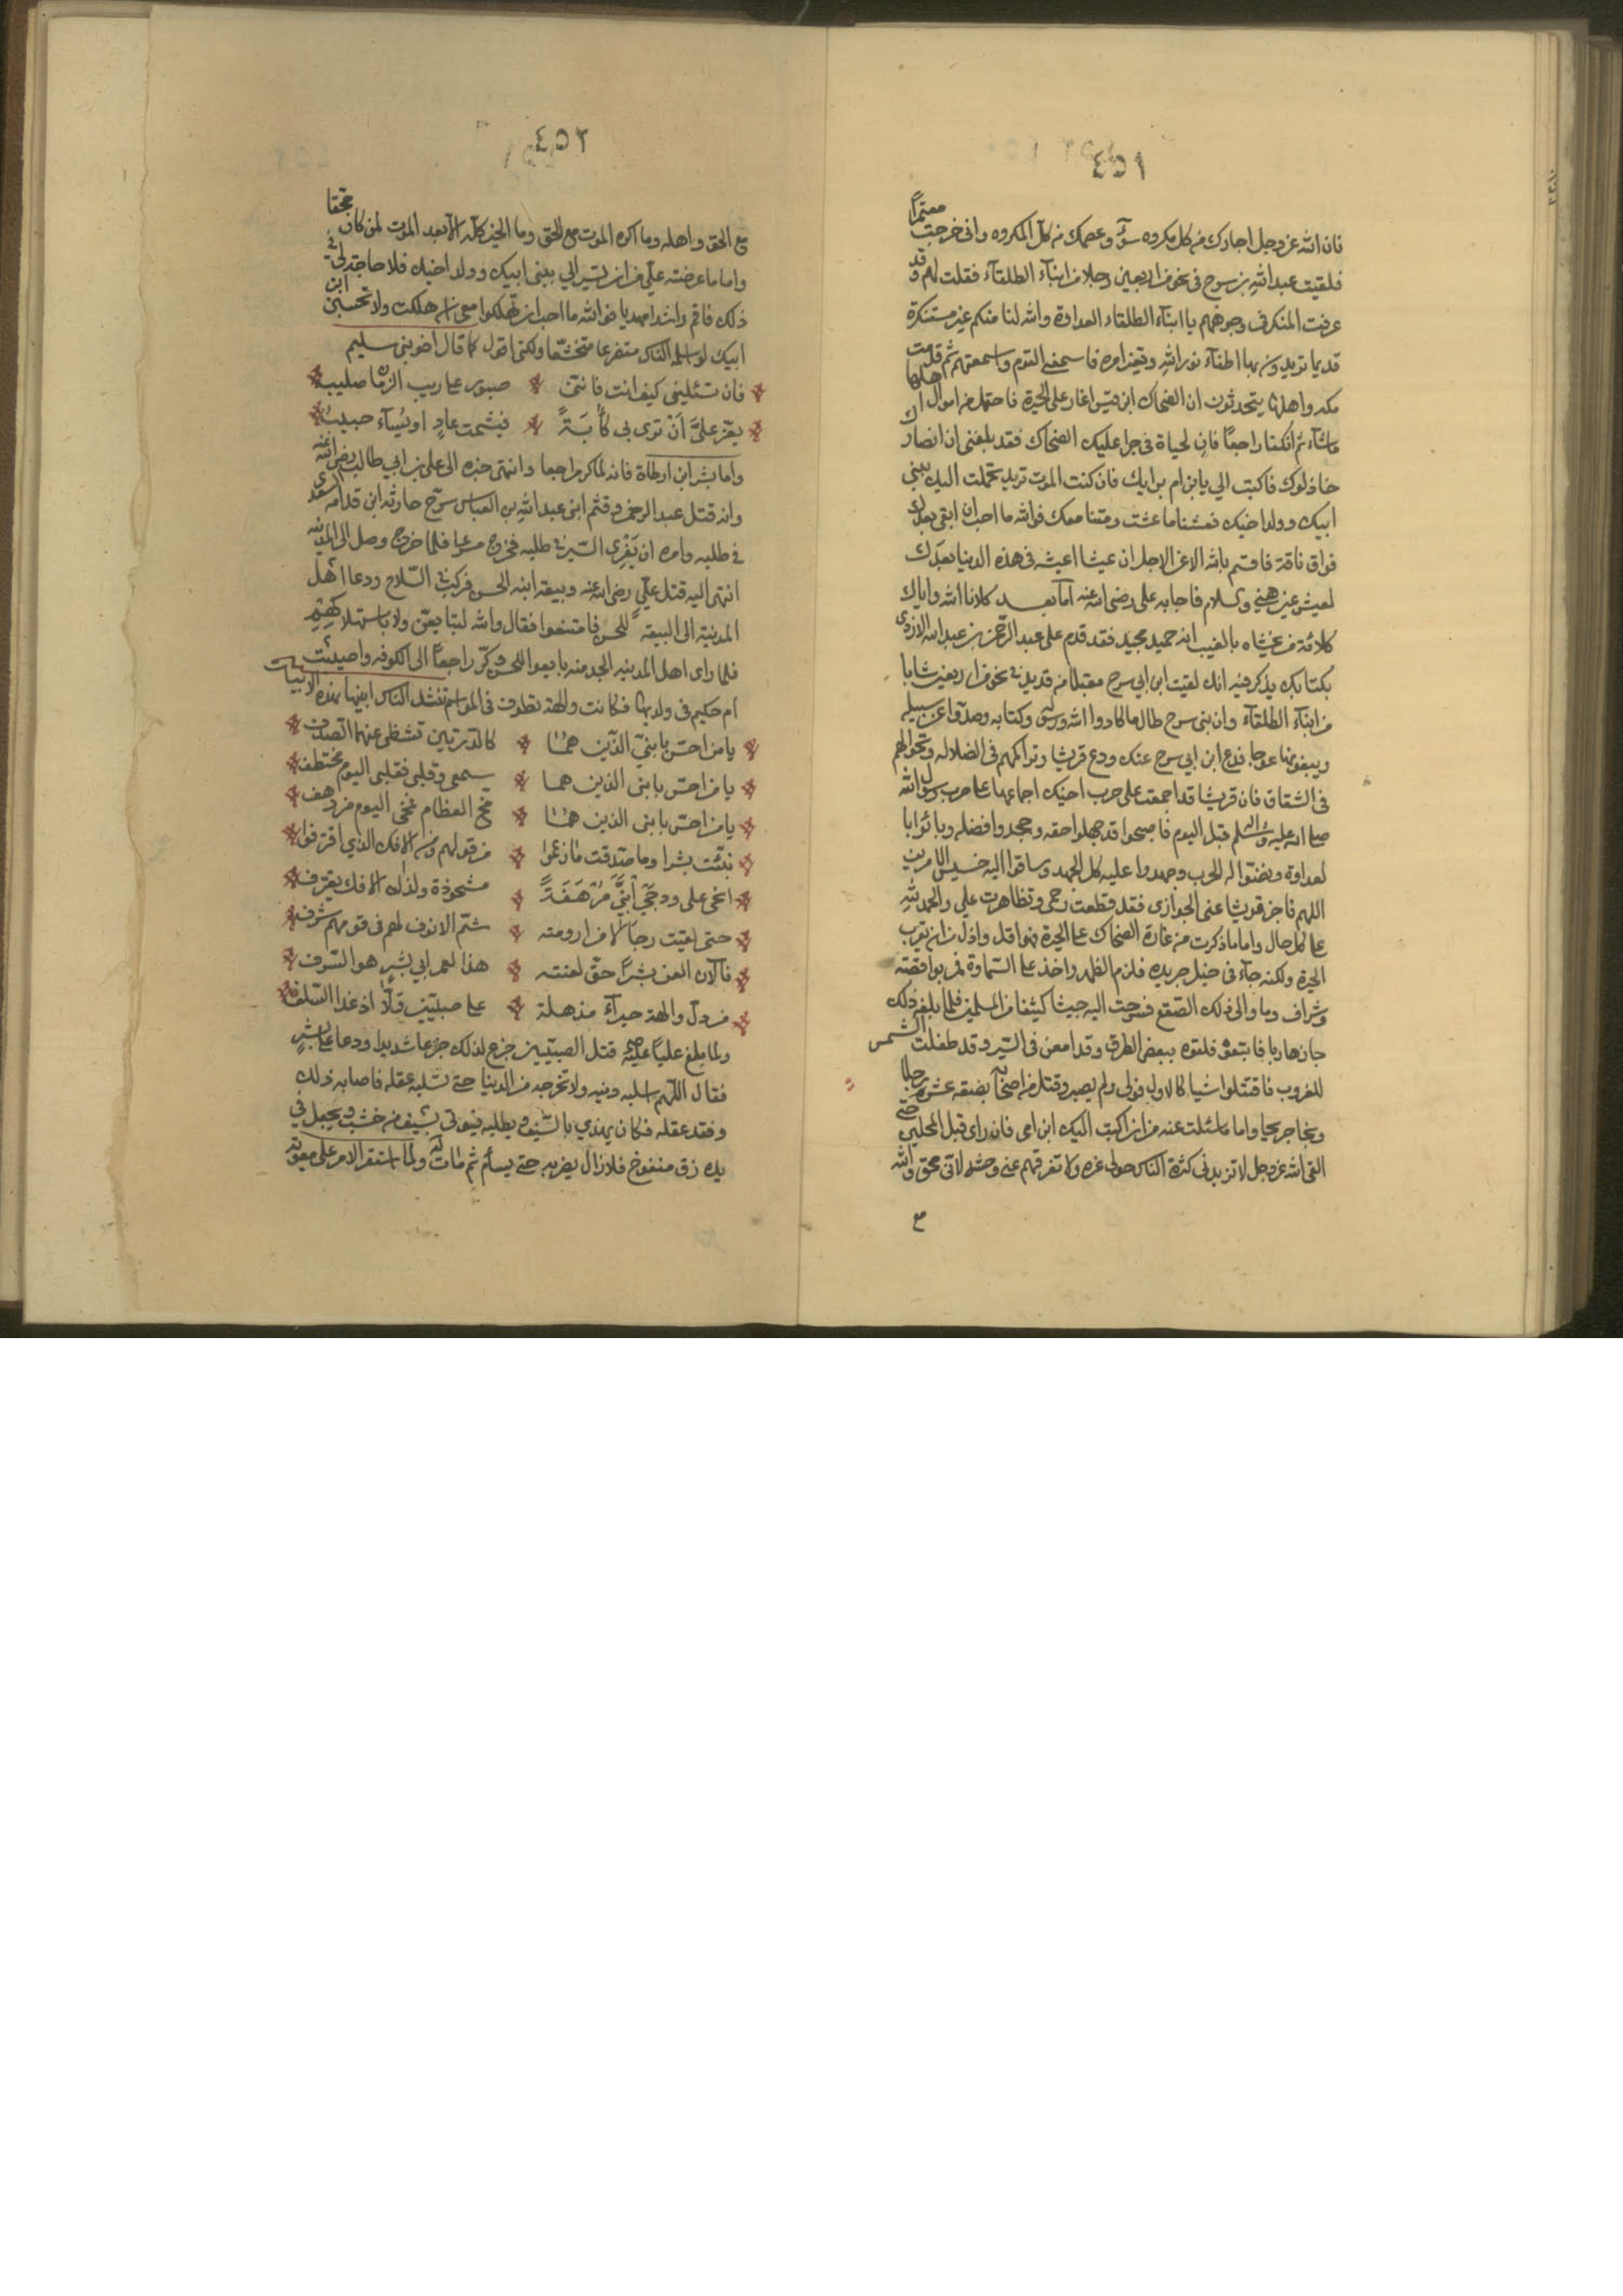 ٤٥١
فان الله عز وجل اجارك من كل مكروه سوء وعصمك من كل المكروه واني خرجت معتمرا
فلقيت عبد الله بن سرح في نحو من اربعين رجلا من ابناء الطلقاء فقلت لهم وقد
عرفت المنكر في وجوههم يا ابناء الطلقاء العداوة والله لنا منكم غير مستنكرة
قديما تريدون بها اطفاء نور الله وتغير امره فاسمعني القوم واسمعتهم ثم قدمت
مكه واهلها يتحدثون ان الضحاك ابن قيس اغار على الحيرة فاحتمل من اموال اهلها
ماشاء ثم انكفا راجعا فان لحياة في جرا عليك الضحاك فقد بلغني ان انصارك
خاذلوك فاكتب الي يا بن ام برايك فان كنت الموت تريد تحملت اليك ببني
ابيك وولد اخيك فعشنا ما عشت ومتنا معك فوالله ما احب ان ابقى بعدك
فواق ناقة فاقسم بالله الاعز الاجل ان عيشا اعيشه في هذه الدنيا بعدك
لعيش غير هني والسلام فاجابه على رضى الله عنه اما بعد كلانا الله واياك
كلائة من يخشاه بالغيب انه حميد مجيد فقد قدم على عبد الرحمن بن عبد الله الازدي
بكتابك يذكر فيه انك لقيت ابن ابي سرح مقبلا من قديد في نحو من اربعين شابا
من ابناء الطلقاء وان بنى سرح طال ما كادوا الله ورسوله وكتابه وصدوا عن سبيله
ويبغونها عوجا فدع ابن ابي سرح عنك ودع قريشا وتراكمهم في الضلاله وتجوالهم
في الشقاق فان قريشا قد اجمعت على حرب اخيك اجماعها على حرب رسول الله
صلى الله عليه وسلم قبل اليوم فاصبحوا قد جهلوا حقه وجحدوا فضله وبائوا بالعداوة
ونصبوا له الحرب وجهدوا عليه كل الجهد وساقوا اليه جيش الامرين
اللهم فاجز قريشا عنى الجوازى فقد قطعت رحمى وتظاهرت علي والحمد لله
على كل حال واما ما ذكرت من غارة الضحاك على الحيرة فهو اقل واذل من ان يقرب
الحيرة ولكنه جاء في خيل جريده فلزم الظهر واخذ على السماوة فمر بواقصة
وشراف وما والى ذلك الصقع فسرحت اليه جيشا كثيفا من المسلمين فلما بلغه ذلك
جاز هاربا فاتبعوه فلقوه ببعض الطرق وقد امعن في السير وقد طفلت الشمس
للغروب فاقتتلوا شيا كالا ولا فولى ولم يصبر وقتل من اصحابه بضعه عشر رجلا
ونجا جريحا واما ما سئلت عنه من ان اكتب اليك ابن امى فان راى قتل المحلين حتى
القى الله عز وجل لا تزيدنى كثرة الناس حولى عزه ولا تفرقهم عنى وحشه لانى محق والله
مع
٤٥٢
مع الحق واهله وما اكره الموت مع الحق وما الخير كله الا بعد الموت لمن كان محقا
واما ما عرضته على من ان تسير الي ببنى ابيك وولد اخيك فلا حاجة لى في
ذلك فاقم راشدا مهديا فوالله ما احب ان تهلكوا معى ان هلكت ولا تحسبن ابن
ابيك لو اسلمه الناس متضرعا متخشعا ولكنى اقول كما قال اخو بنى سليم
فان تسئلينى كيف انت فاننى صبور على ريب الزمان صليب
يعز علي ان ترى بى كآبة فيشمت عاد او يساء حبيب
واما بشر ابن ارطاة فانه لما كر راجعا وانتهى خبره الى على بن ابي طالب رضى الله عنه
وانه قتل عبد الرحمن وقثم ابنى عبد الله بن العباس سرح حارثه ابن قدامه السعدى
في طلبه وامره ان يغرى السير في طلبه فخرج مسرعا فلما خرج وصل الى المدينه
انتهى اليه قتل علي رضى الله عنه وبيعة ابنه الحسن فركب في السلاح ودعا اهل
المدينة الى البيعة للحسن فامتنعوا فقال والله لتبايعن ولو باستاهكم
فلما راى اهل المدينه الجد منه بايعوا للحسن وكر راجعا الى الكوفه واصيبت
ام حكيم في ولديها فكانت والهة تطوف في المواسم تنشد الناس ابنيها بهذه الابيات
يا من احس بابنيّ الذين هما كالدرتين تشظى عنهما الصدف
يا من احس بابنى الذين هما سمعى وقلبى فقلبى اليوم مختطف
يا من احس بابنى الذين هما مخ العظام فمخى اليوم مزدهف
نبئت بشرا وما صدقت ما زعموا من قولهم ومن الافك الذي اقترفوا
انحى على ودجي ابني مرهفة مشحوذة ولذاك الافك يقترف
حتى لقيت رجالا من ارومته شم الانوف لهم في قومهم شرف
فالآن العن بشرا حق لعنته هذا لعمر ابي بشر هو السرف
من دل والهة حيراء مذهلة على صبيين ضلا اذ غدا السلف
ولما بلغ عليا عليه قتل الصبيين جزع لذلك جزعا شديدا ودعا على بشر
فقال اللهم اسلبه دينه ولا تخرجه من الدنيا حتى تسلبه عقله فاصابه ذلك
وفقد عقله فكان يهذي بالسيف يطلبه فيوتى بسيف من خشب ويجعل في
يده زق منفوخ فلا زال يضربه حتى يسأم ثم مات ولما استقر الامر على معويه